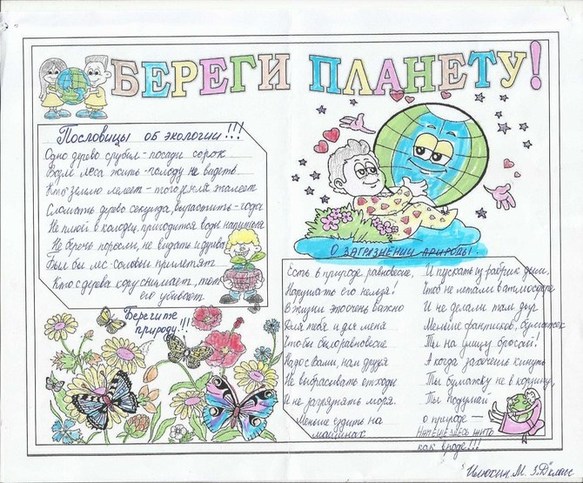 БЕРЕГИ ПЛАНЕТУ!
Пословицы об экологии!!!
Одно дерево срубил - посади сорок
Возле леса жить - голоду не видеть
Кто землю лелеет - того земля жалеет
Сломать дерево секунда, вырастить - года
Не плюй в колодец, пригодится воды напиться
Не беречь поросли, не видать и дерева
Был бы лес - соловьи прилетят
Кто с дерева кору снимает, тот
его убивает
Берегите
природу!!!
О ЗАГРЯЗНЕНИИ ПРИРОДЫ!
Есть в природе равновесие,
Нарушать его нельзя!
В жизни это очень важно
Для тебя и для меня
Чтобы было равновесие
Надо с вами, нам друзья
Не выбрасывать отходы
И не загрязнять моря.
Меньше ездить на
машинах
И пускать из фабрик дым,
Чтоб не летали в атмосфере
И не делали там дыр
Меньше фантиков, бумажек
Ты на улицу бросай!
А когда захочешь кинуть
Ты бумажку не в корзину,
Ты подумай
о природе —
НАМ ЕЩЁ ЗДЕСЬ ЖИТЬ
как вроде!!!
М. 3 "В" класс